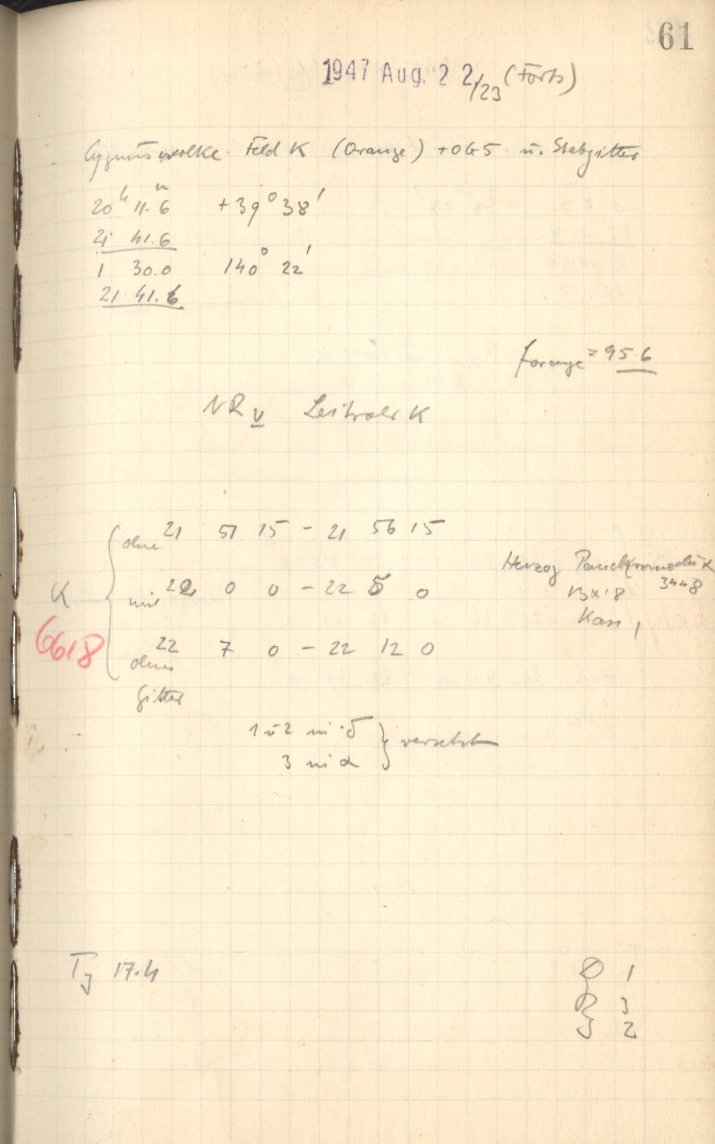 61
1947 Aug. 2 2/23 (Forts)
Cygnuswolke Feld K (Orange) + OG5 u. Stabgitter
20ʰ 11.ᵐ6 +39° 38'
21 41.6
1 30.0 140° 22'
21 41.6
f orange = 95.6
NR V Leitrohr K
ohne 21 51 15 – 21 56 15
Herzog
K mit 22 0 0 – 22 5 0
13x18 3448
Kass 1
6618
ohne 22 7 0 – 22 12 0
Gitter
1 u 2 in δ } versetzt
3 in α
T 17.4
1
3
2